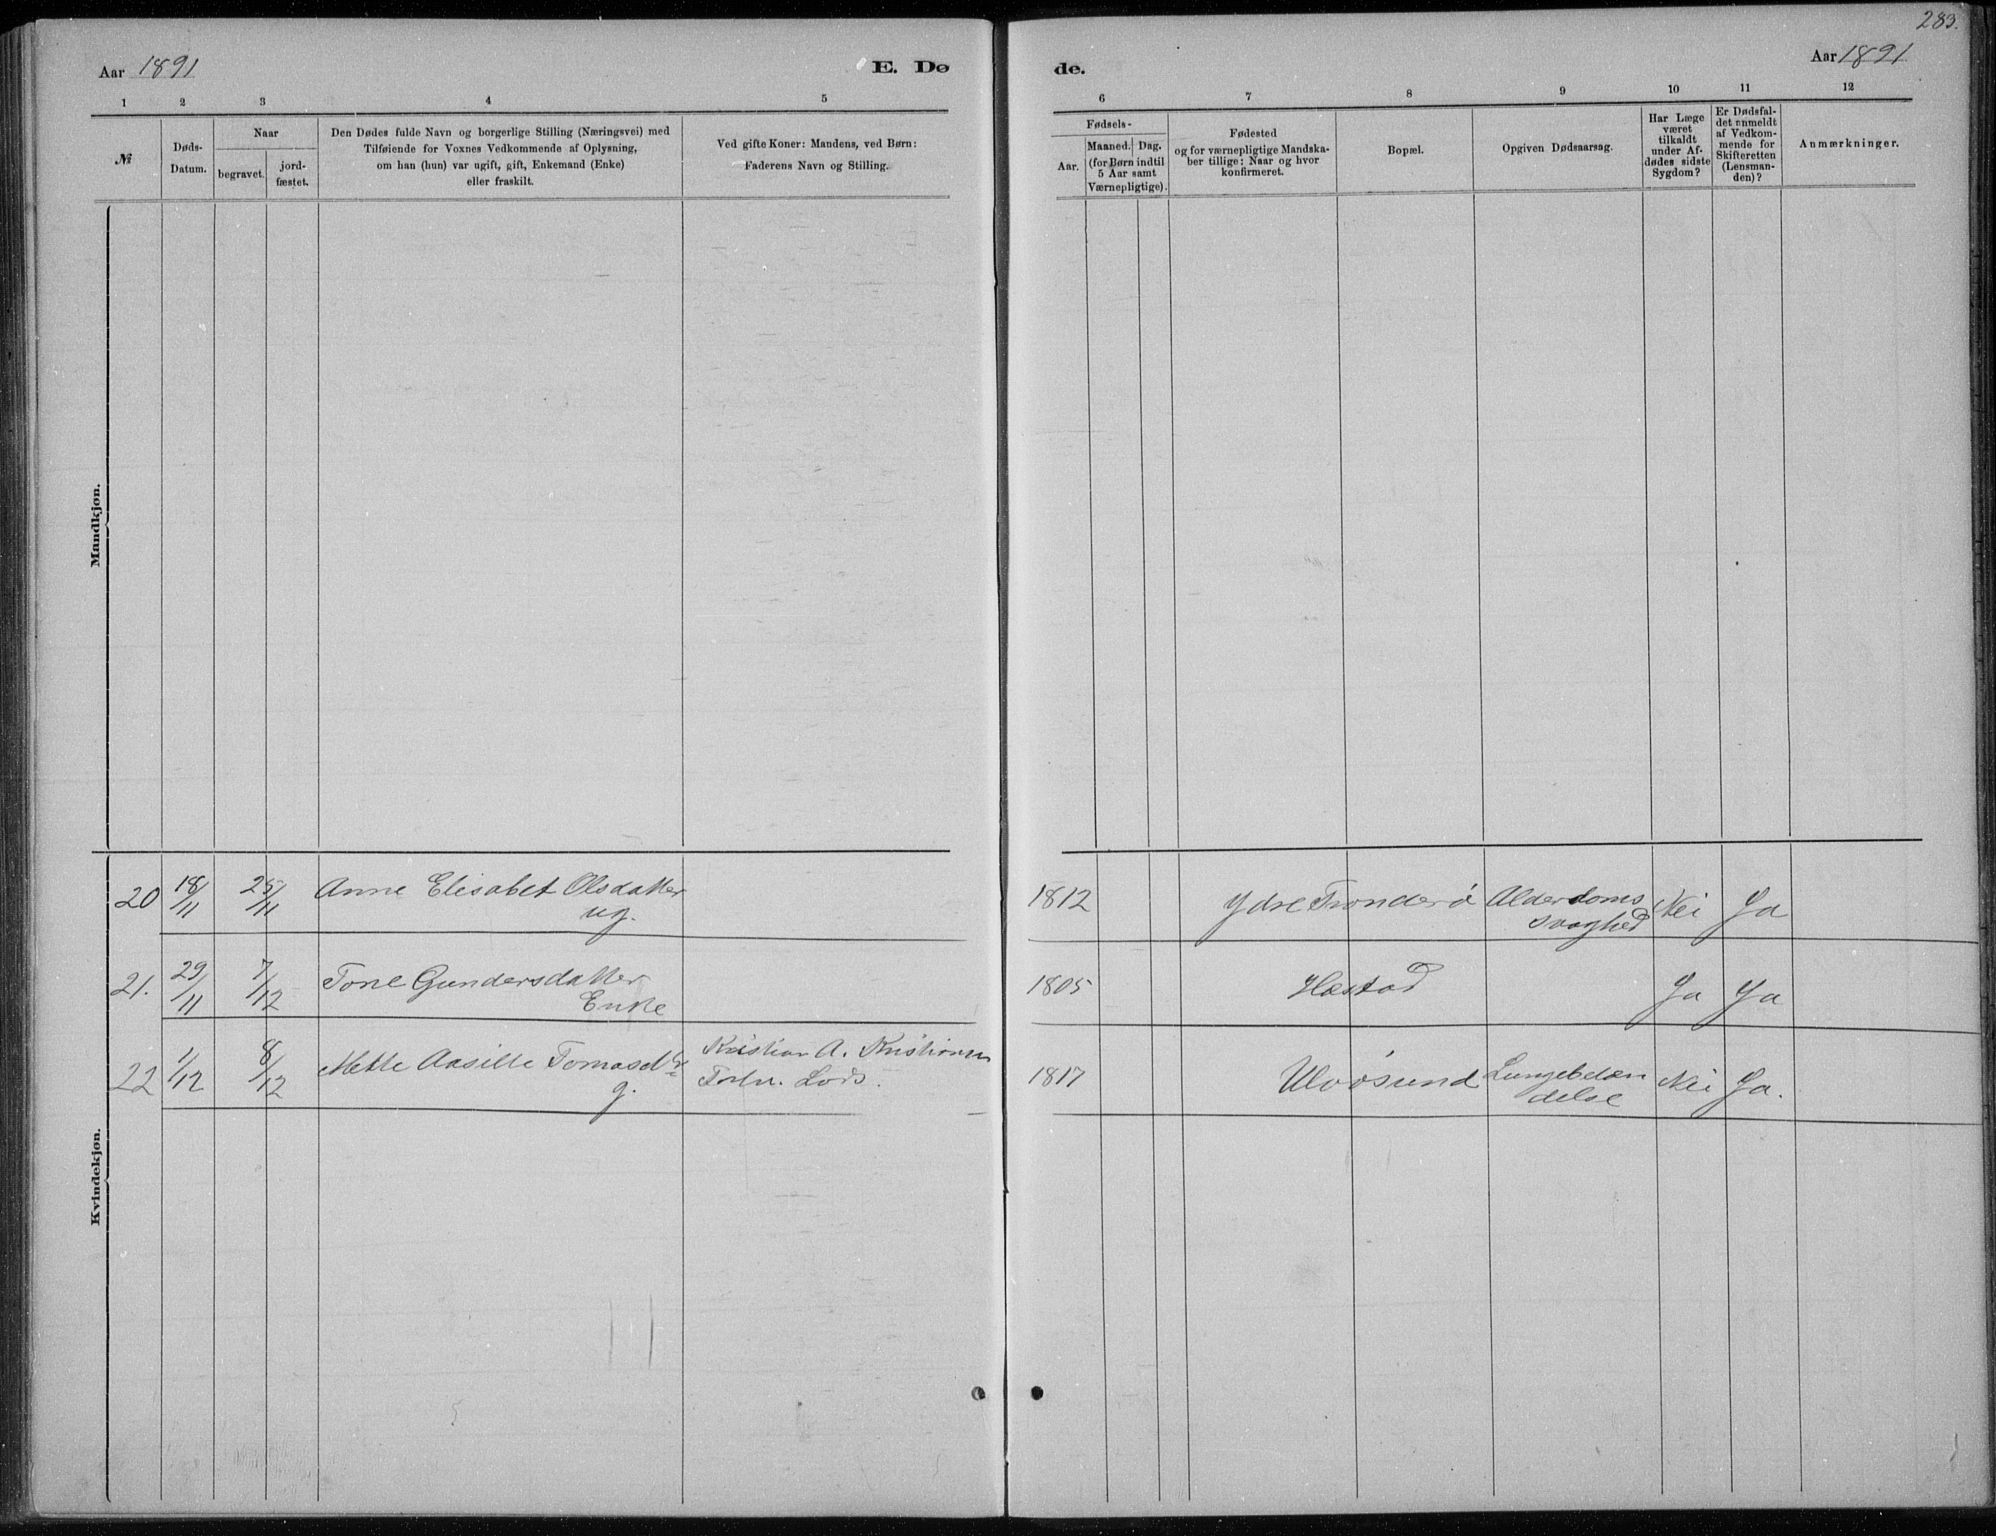 283.
Aar 1891
E. Dø
de.
Aar 1891
1 2 3 4 5
6 7 8 9 10 11 12
№
Døds-
Datum.
Naar
begravet.
jord-
fæstet.
Den Dødes fulde Navn og borgerlige Stilling (Næringsvei) med
Tilføiende for Voxnes Vedkommende af Oplysning,
om han (hun) var ugift, gift, Enkemand (Enke)
eller fraskilt.
Ved gifte Koner: Mandens, ved Børn:
Faderens Navn og Stilling.
Fødsels-
Aar.
Maaned. Dag.
(for Børn indtil
5 Aar samt
Værnepligtige).
Fødested
og for værnepligtige Mandska-
ber tillige: Naar og hvor
konfirmeret.
Bopæl.
Opgiven Dødsaarsag.
Har Læge
været
tilkaldt
under Af-
dødes sidste
Sygdom?
Er Dødsfal-
det anmeldt
af Vedkom-
mende for
Skifteretten
(Lensman-
den)?
Anmærkninger.
Mandkjøn.
Kvindekjøn.
20 18/11 25/11 Anne Elisabet Olsdatter
ug.
1812 Ydre Tronderö Alderdoms Nei Ja
svaghed
21. 29/11 7/12 Tone Gundersdatter
Enke
1805 Hæstad Ja Ja
22 1/12 8/12 Mette Aasille Tomasdtr
g.
Kristian A. Kristiansen
Lods.
1817 Ulvösund Lungebetæn Nei Ja.
delse